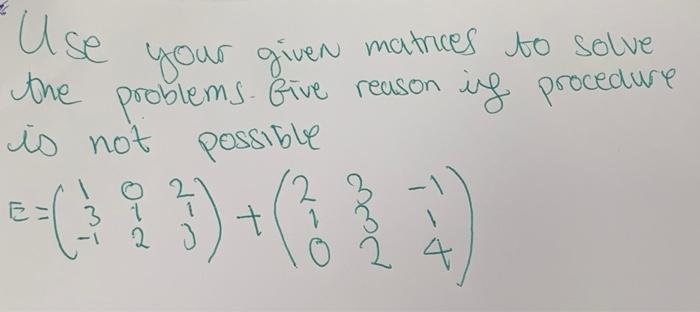 Use your given matrices to solve
the problems. Give reason if procedure
is not possible
E = (1 0 2) + (2 3 -1)
3 1 1 1 3 1
-1 2 3 0 2 4